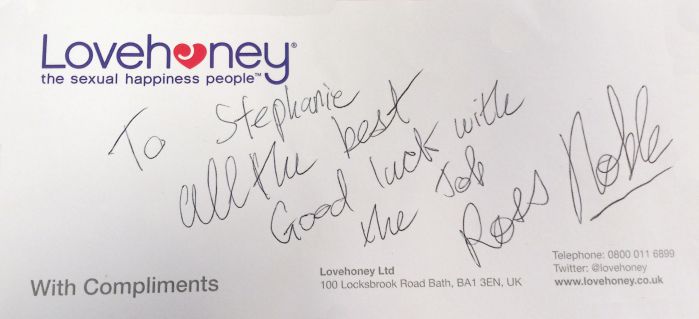 Lovehoney®
the sexual happiness people™
To Stephanie
all the best
Good luck with
the Job
Ross Noble
With Compliments
Lovehoney Ltd
100 Locksbrook Road Bath, BA1 3EN, UK
Telephone: 0800 011 6899
Twitter: @lovehoney
www.lovehoney.co.uk